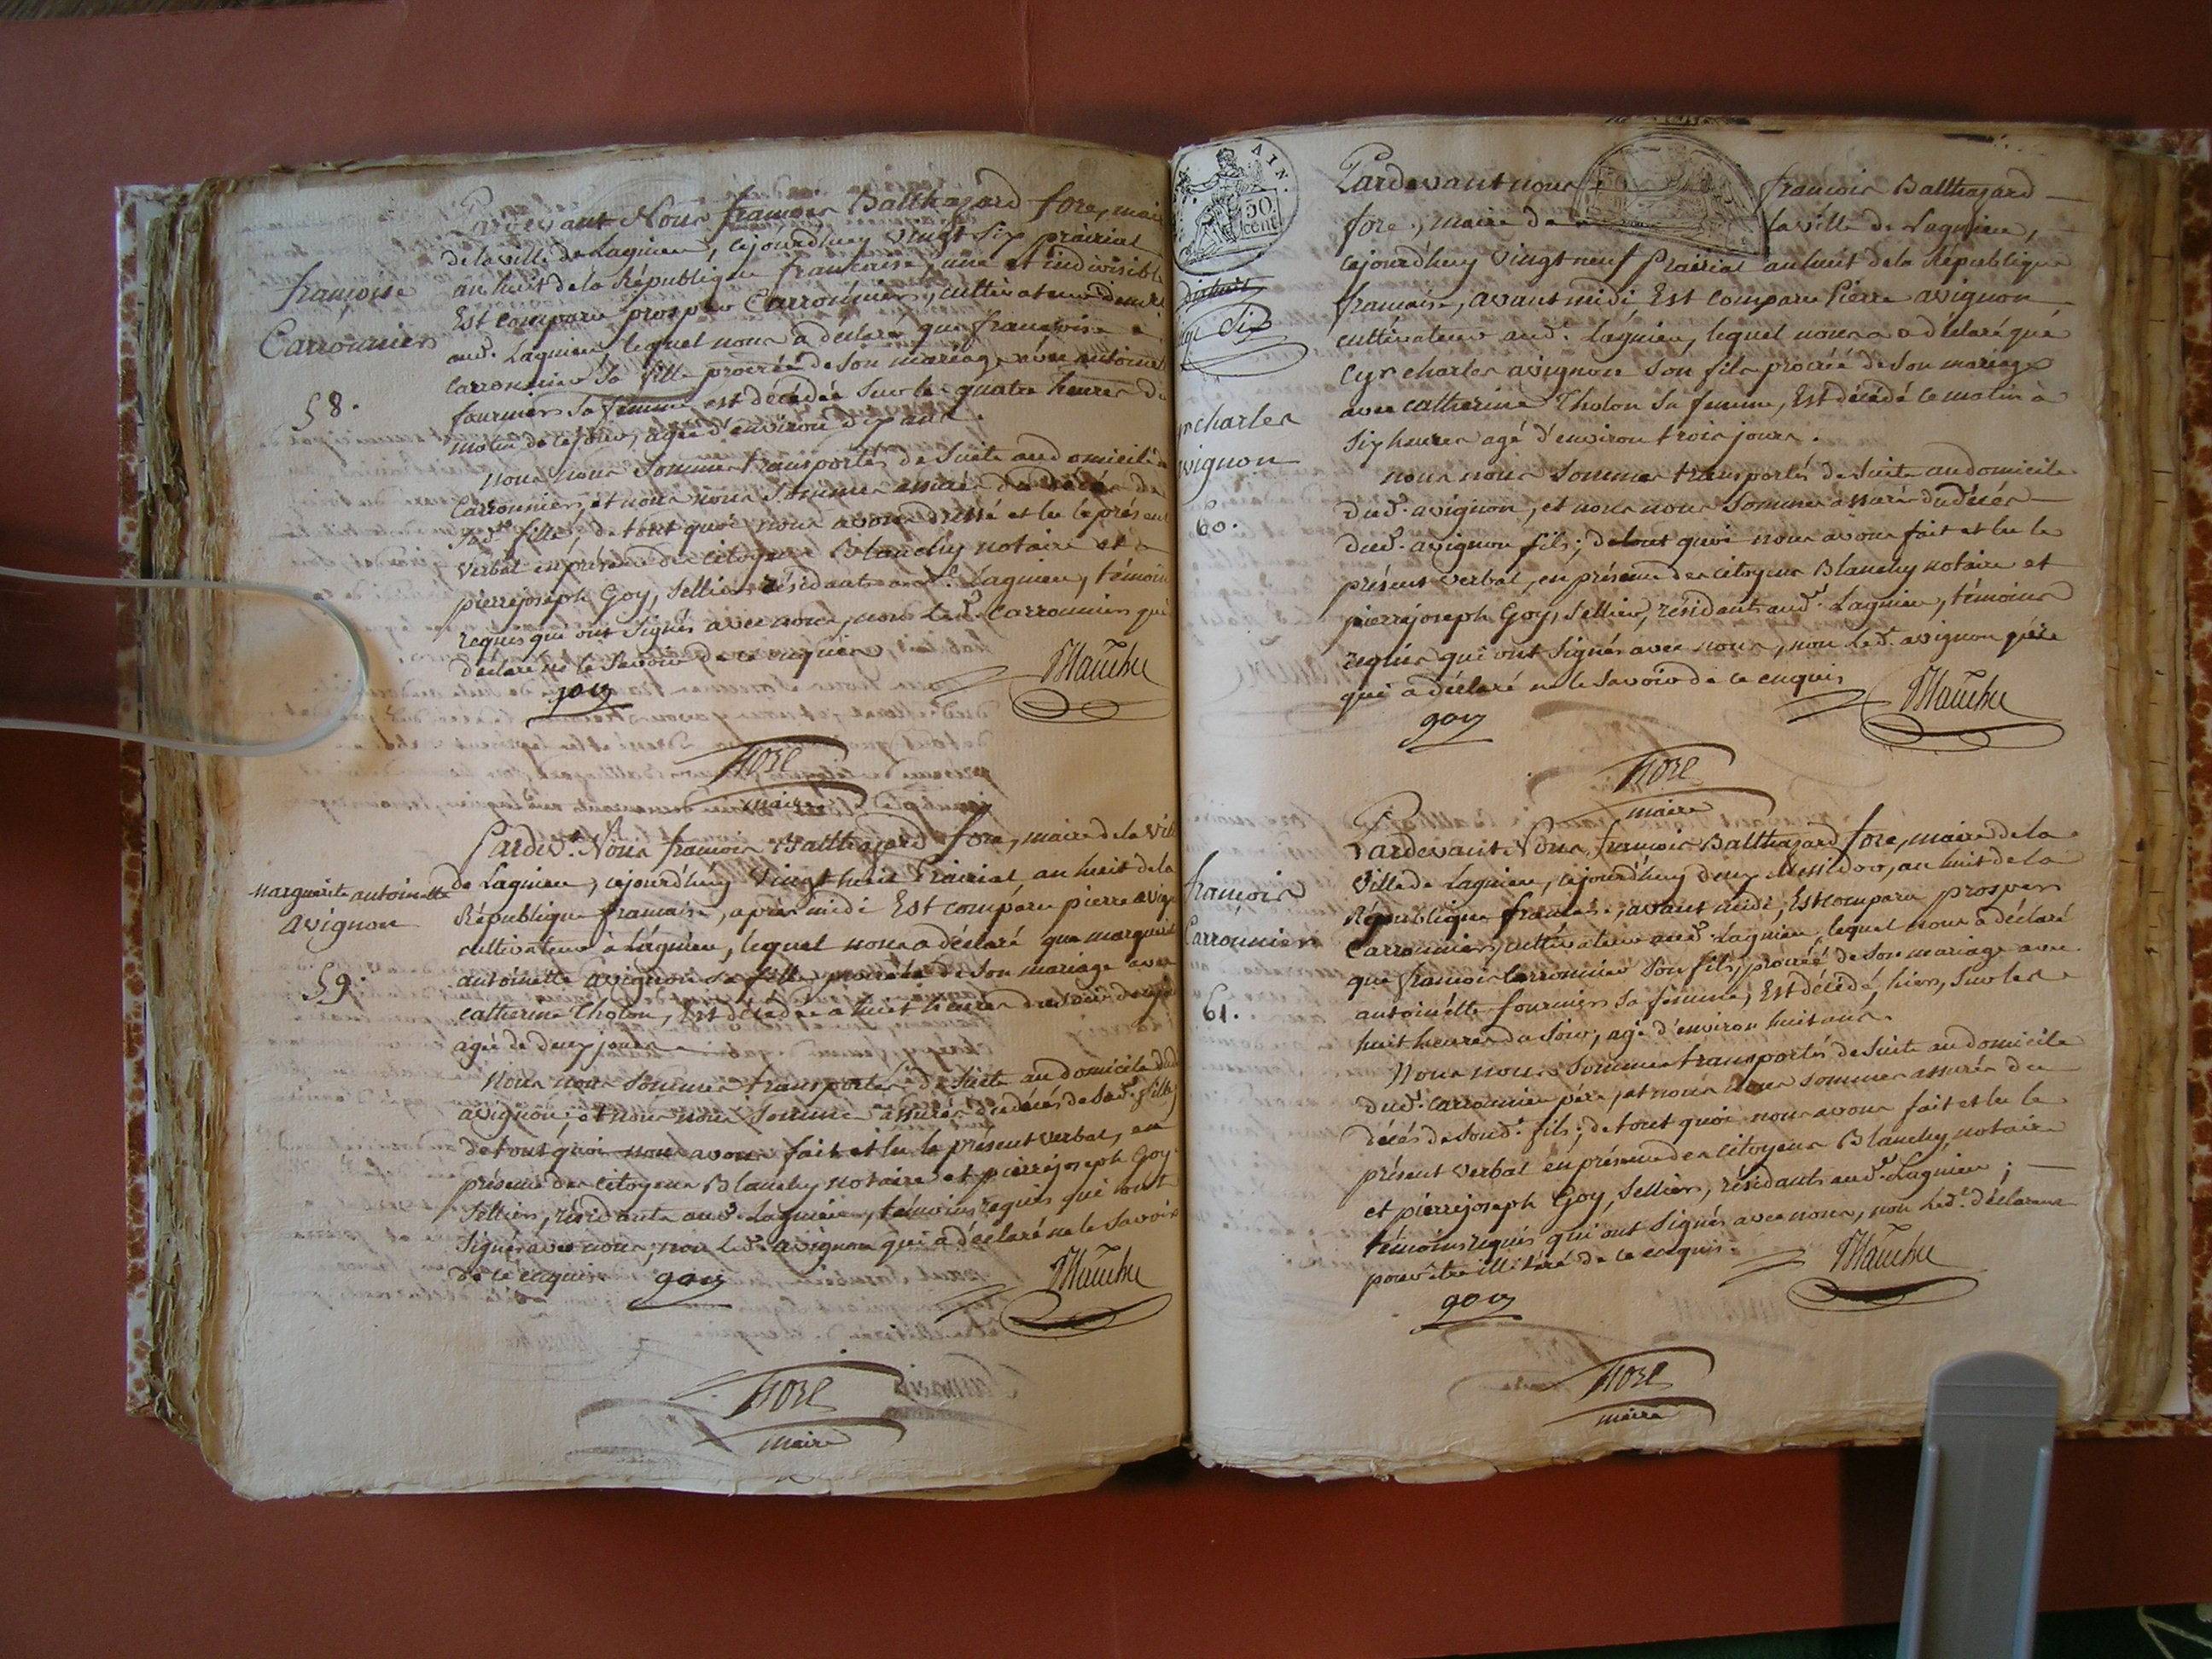 françoise
Carronnier
58.
Pardevant Nous françois Balthazard fore, mair
de la ville de Lagnieu, cejourdhuy vingt six prairial
an huit de la République francaise, une et indivisible
Est comparu prosper Carronnier, cultivateur demrt
aud. Lagnieu, lequel nous a declaré que françoise
Carronnier sa fille procréé de son mariage avec antoinet
fournier sa femme est décédée sur les quatre heures du
matin de ce jour, agée d'environ six ans.
nous nous sommes transportés de suite au domicile
Carronnier, et nous nous sommes assurés du décès de
sad. fille, de tout quoi nous avons dressé et lu le présent
verbal en présence des citoyens Blanchy notaire et
pierre joseph Goy, Sellier résidants aud. Lagnieu, témoins
requis qui ont signés avec nous, non led. Carronnier qui
déclaré ne le savoir de ce enquis
goy Blanchy
fore
maire
marguerite antoinette
avignon
59.
Pardev.t Nous francois Balthazard fore, maire de la vill
de Lagnieu, cejourdhuy vingt huit Prairial an huit de la
République francaise, après midi Est comparu pierre avig
cultivateur à Lagnieu, lequel nous a déclaré que marguerit
antoinette avignon sa fille procréée de son mariage avec
catherine Tholon, Est décédée à huit heures du
agée de deux jours
Nous nous sommes transportés de suite au domicile dud
avignon; et nous nous sommes assurés du décès de sad. fille,
de tout quoi nous avons fait et lu le présent verbal, en
présence des citoyens Blanchy notaire et pierre joseph Goy
Sellier, résidants aud. Lagnieu, témoins requis qui ont
signés avec nous, non led. avignon qui a déclaré ne le savoir
de ce enquis goy Blanchy
fore
maire
AIN.
50
cent
six
charles
avignon
60.
Pardevant nous françois Balthazard
fore, maire de la ville de Lagnieu,
cejourdhuy Vingt neuf Prairial an huit de la République
francaise, avant midi Est comparu Pierre avignon
cultivateur aud. Lagnieu, lequel nous a déclaré que
Cyr charles avignon son fils procréé de son mariage
avec catherine Tholon sa femme, Est décédé ce matin à
six heures agé d'environ trois jours.
nous nous sommes transportés de suite au domicile
dud. avignon, et nous nous sommes assurés du décès
dud. avignon fils; de tout quoi nous avons fait et lu le
présent verbal, en présence des citoyens Blanchy notaire et
pierre joseph Goy, Sellier, résidants aud. Lagnieu, témoins
requis qui ont signés avec nous, non led. avignon père
qui a déclaré ne le savoir de ce enquis
goy Blanchy
fore
maire
françois
Carronnier
61.
Pardevant Nous françois Balthazard fore, maire de la
ville de Lagnieu, cejourdhuy deux Messidor, an huit de la
République francaise, avant midi, Est comparu prosper
Carronnier, cultivateur aud. Lagnieu, lequel nous a déclaré
que françois Carronnier son fils, procréé de son mariage avec
antoinette fournier sa femme, Est décédé, hier, sur les
huit heures du soir, agé d'environ huit ans.
Nous nous sommes transportés de suite au domicile
dud. Carronnier père, et nous nous sommes assurés du
décès de sond. fils; de tout quoi nous avons fait et lu le
présent verbal en présence des citoyens Blanchy, notaire
et pierre joseph Goy, Sellier, résidants aud. Lagnieu;
témoins requis qui ont signés avec nous, non led. déclarant
pour être illitéré de ce enquis.
goy Blanchy
fore
maire